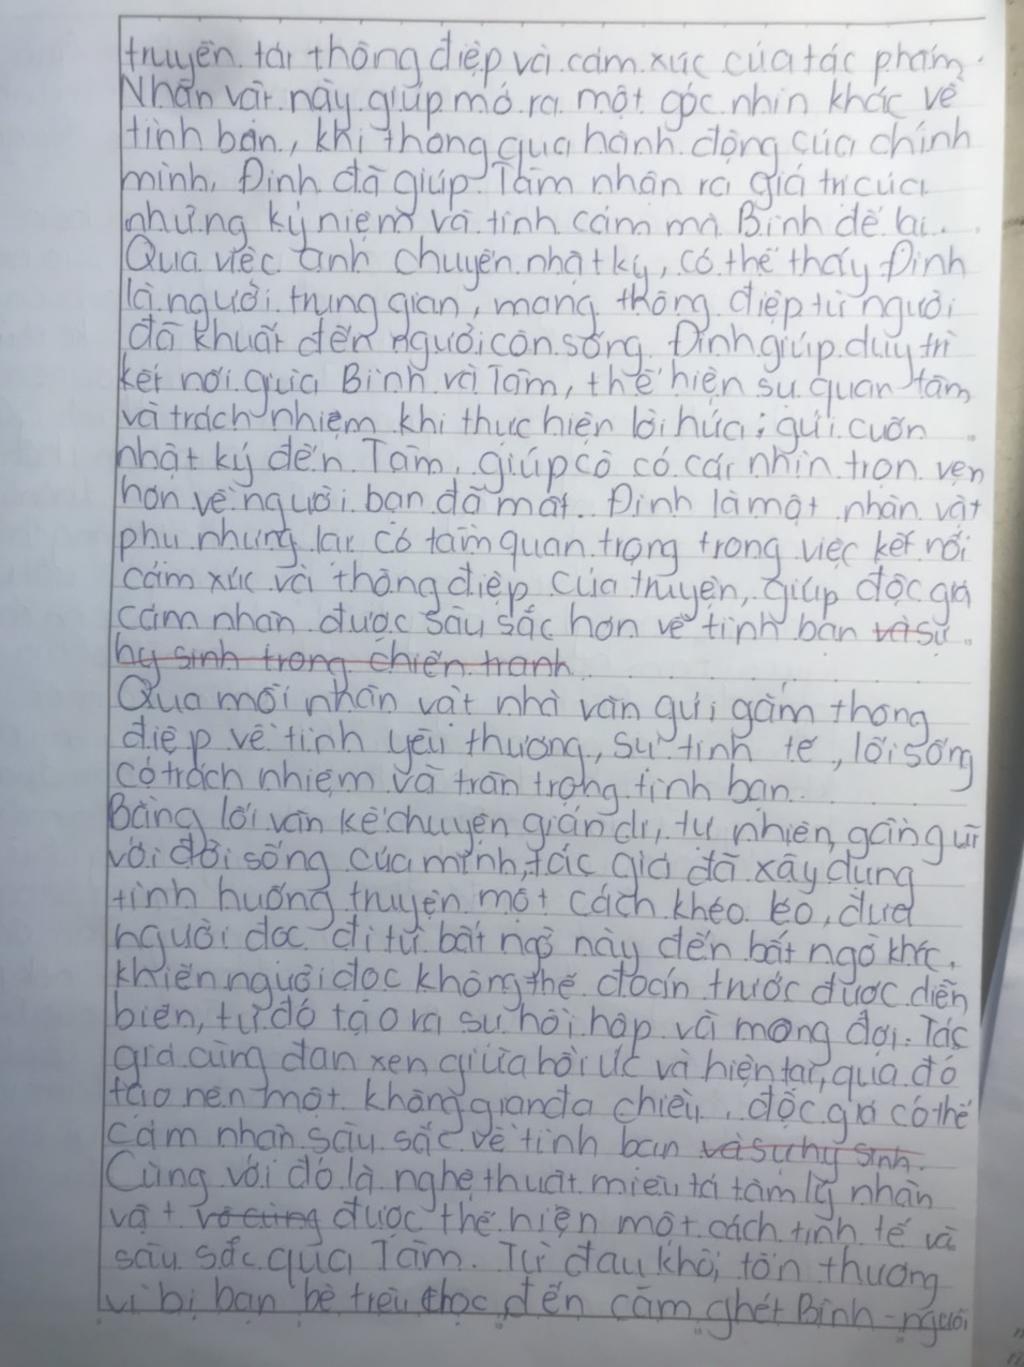 truyền tải thông điệp và cảm xúc của tác phẩm.
Nhân vật này giúp mở ra một góc nhìn khác về
tình bạn, khi thông qua hành động của chính
mình, Định đã giúp Tâm nhận ra giá trị của
những kỷ niệm và tình cảm mà Bình để lại.
Qua việc anh chuyển nhật ký, có thể thấy Định
là người trung gian, mang thông điệp từ người
đã khuất đến người còn sống. Định giúp duy trì
kết nối giữa Bình và Tâm, thể hiện sự quan tâm
và trách nhiệm khi thực hiện lời hứa; gửi cuốn
nhật ký đến Tâm, giúp cô có cái nhìn trọn vẹn
hơn về người bạn đã mất. Định là một nhân vật
phụ nhưng lại có tầm quan trọng trong việc kết nối
cảm xúc và thông điệp của truyện, giúp độc giả
cảm nhận được sâu sắc hơn về tình bạn và sự
hy sinh trong chiến tranh
Qua mỗi nhân vật nhà văn gửi gắm thông
điệp về tình yêu thương, sự tinh tế, lối sống
có trách nhiệm và trân trọng tình bạn.
Bằng lối văn kể chuyện giản dị, tự nhiên, gần gũi
với đời sống của mình, tác giả đã xây dựng
tình huống truyện một cách khéo léo, đưa
người đọc đi từ bất ngờ này đến bất ngờ khác,
khiến người đọc không thể đoán trước được diễn
biến, từ đó tạo ra sự hồi hộp và mong đợi. Tác
giả cũng đan xen giữa hồi ức và hiện tại, qua đó
tạo nên một không gian đa chiều, độc giả có thể
cảm nhận sâu sắc về tình bạn và sự hy sinh.
Cùng với đó là nghệ thuật miêu tả tâm lý nhân
vật vô cùng được thể hiện một cách tinh tế và
sâu sắc qua Tâm. Từ đau khổ, tổn thương
vì bị bạn bè trêu chọc đến căm ghét Bình - người